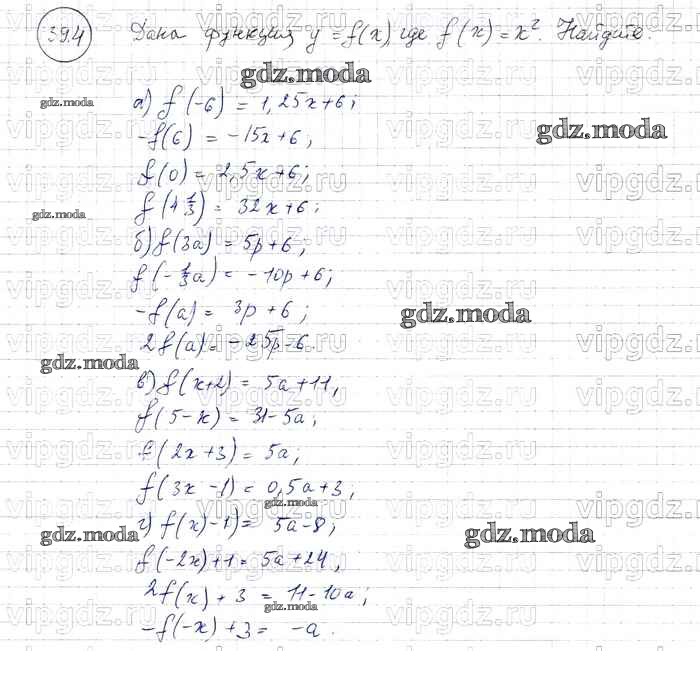 39.4 Дана функция y = f(x), где f(x) = x². Найдите:
gdz.moda
а) f(-6) = 1,25x+6;
gdz.moda
-f(6) = -15x+6;
gdz.moda
f(0) = 2,5x+6;
f(4 1/3) = 32x+6;
gdz.moda
б) f(3a) = 5p+6;
f(-1/3a) = -10p+6;
-f(a) = 3p+6;
gdz.moda
2f(a) = -25p-6.
gdz.moda
в) f(x+2) = 5a+11,
f(5-x) = 31-5a;
f(2x+3) = 5a;
f(3x-1) = 0,5a+3;
gdz.moda
г) f(x)-1) = 5a-8;
gdz.moda
gdz.moda
f(-2x)+1 = 5a+24,
2f(x)+3 = 11-10a;
gdz.moda
-f(-x)+3 = -a.
vipgdz.ru vipgdz.ru vipgdz.ru vipgdz.ru